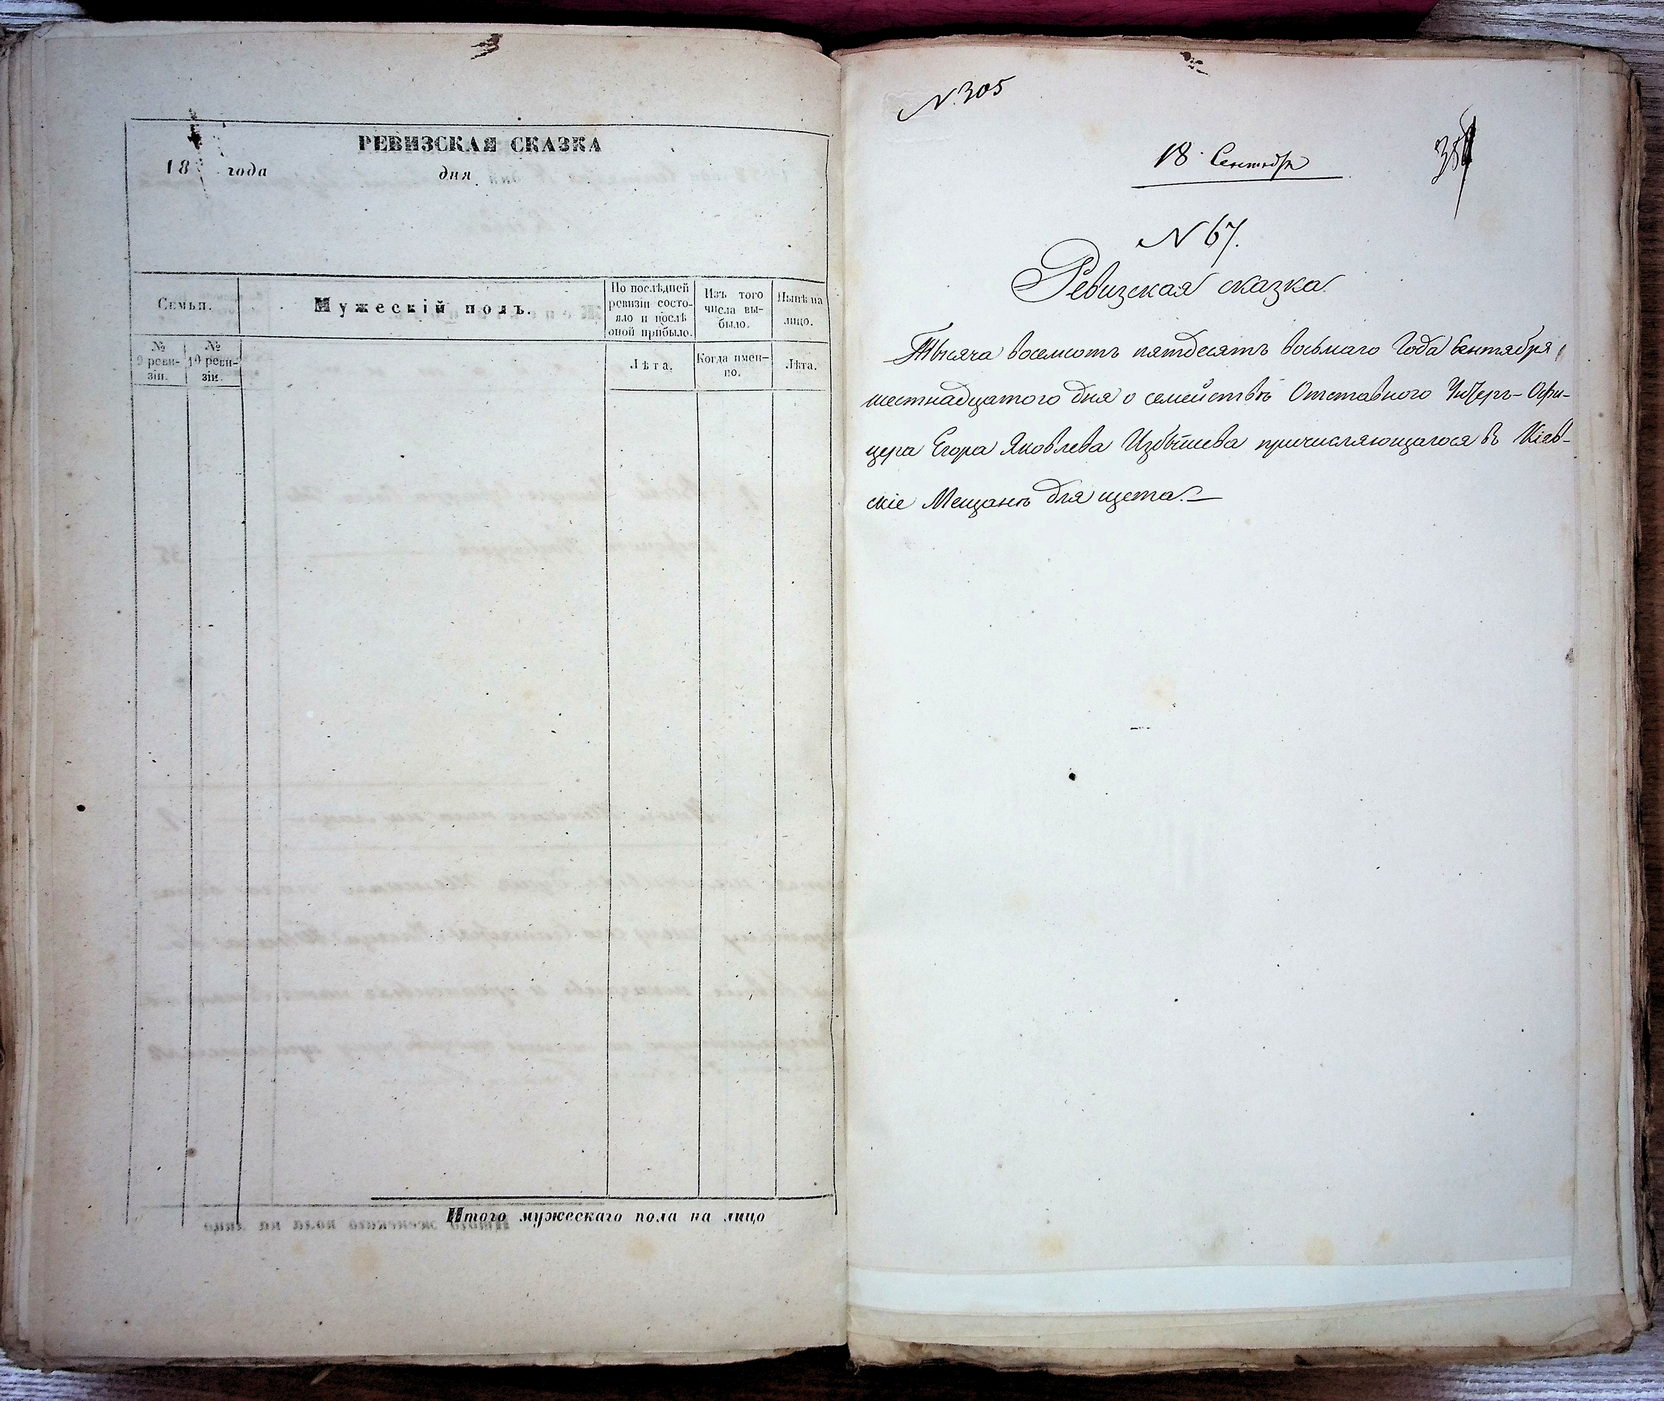 РЕВИЗСКАЯ СКАЗКА
18 года дня
Семьи.
Мужескій полъ.
По послѣдней
ревизіи состо-
яло и послѣ
оной прибыло.
Изъ того
числа вы-
было.
Нынѣ на
лицо.
№
9 реви-
зіи.
№
10 реви-
зіи.
Лѣта.
Когда имен-
но.
Лѣта.
Итого мужескаго пола на лицо
N 305
18 Сентября
N 67.
Ревизская сказка
Тысяча восемсотъ пятдесятъ восьмаго Года Сентября
шестнадцатого дня о семействѣ Отставного Унтеръ-Офи-
цера Егора Яковлева Избышева причисляющагося въ Кіев-
скіе Мещане для щета.